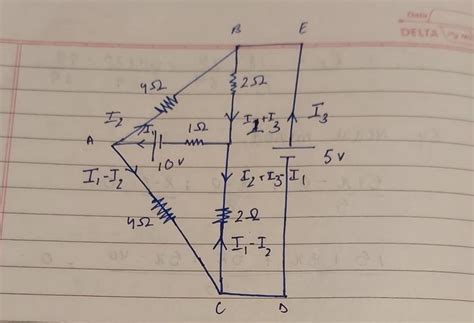 Date
DELTA
B
E
4Ω
2Ω
I2
I1
1Ω
I2+I3
I3
A
10v
5v
I1-I2
I2+I3
I1
4Ω
2Ω
I1-I2
C
D